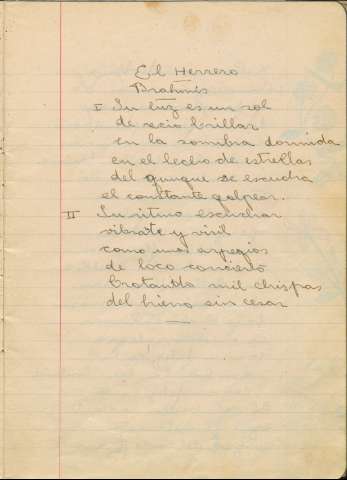 El Herrero
Brahms
I Su luz es un sol
de recio brillar
en la sombra dormida
en el lecho de estrellas
del yunque se escucha
el constante golpear.
II Su ritmo escuchar
vibrate y viril
como unos arpegios
de loco concierto
brotando mil chispas
del hierro sin cesar